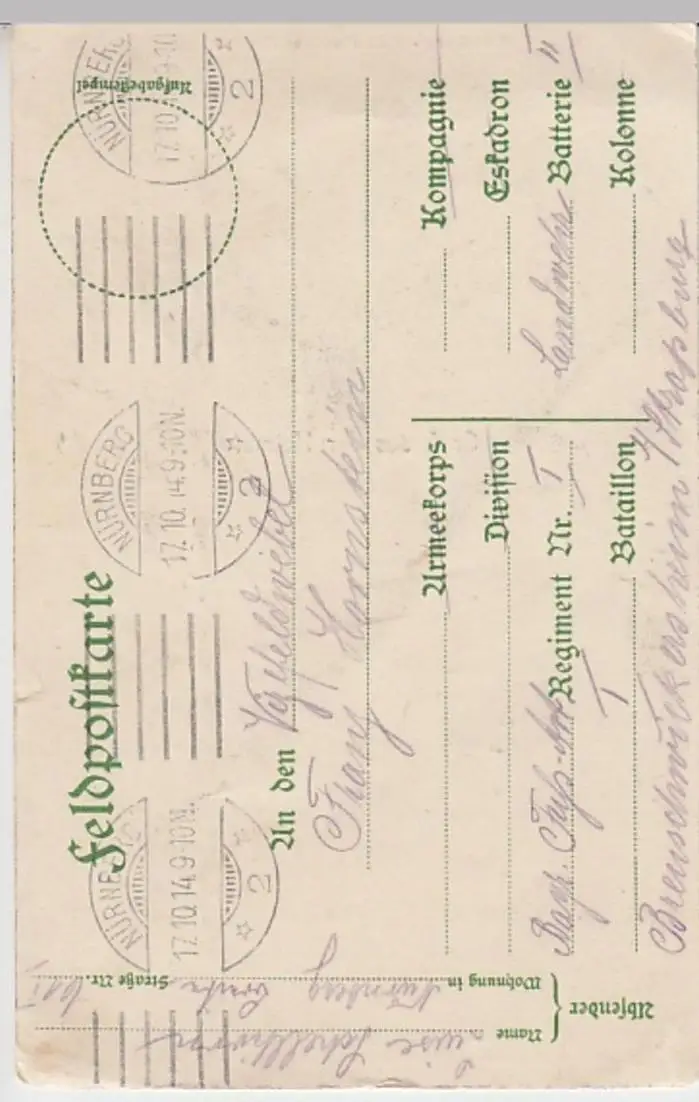 Feldpostkarte
Aufgabestempel
NÜRNBERG
17.10.14.9-10N.
2
NÜRNBERG
17.10.14.9-10N.
2
NÜRNBERG
17.10.14.9-10N.
2
An den Vizefeldwebel
Franz Hornstein
Armeekorps Kompagnie
Division Eskadron
Bayr. Fuß-Art Regiment Nr. I Landwehr Batterie II
I Bataillon Kolonne
Breuschwickersheim / Straßburg
Absender
Name Luise
Wohnung in Nürnberg
Straße Nr.